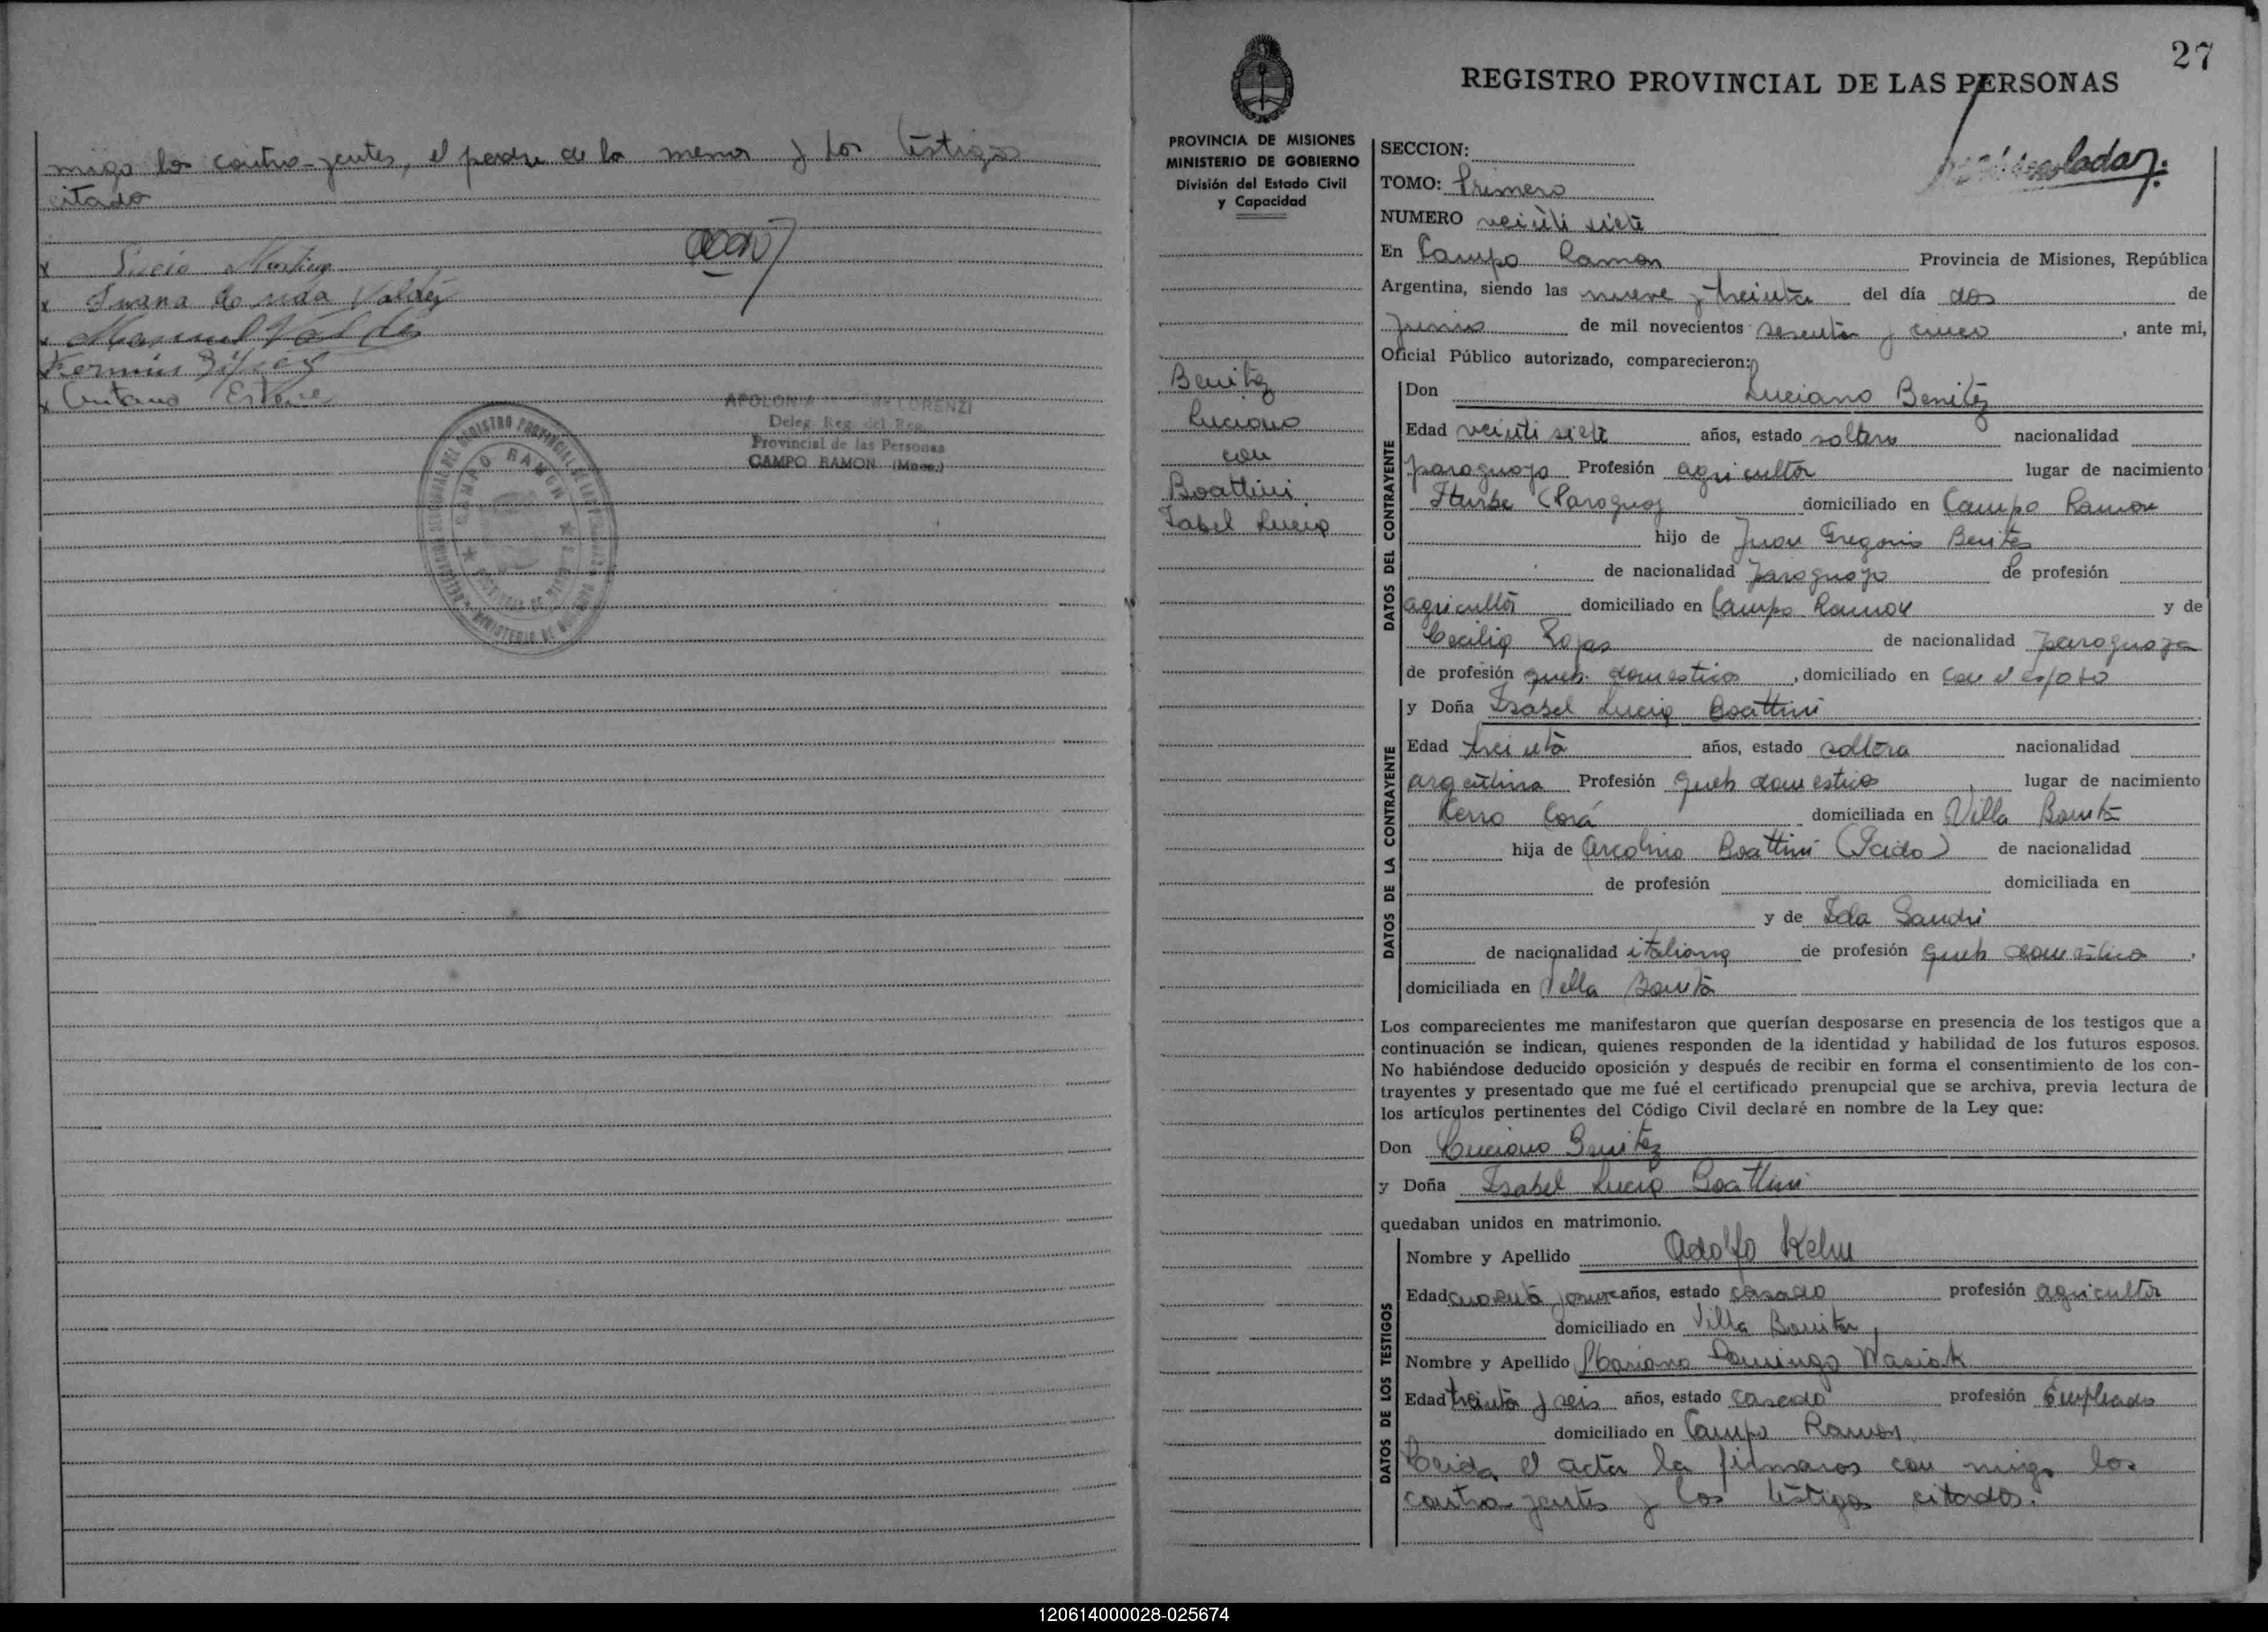 migo los contra-yentes, el padre de la menor y los testigos
citado
x Lucio
x Juana
x Manuel Valdez
Fermin
x
APOLONIA LORENZI
Deleg. Reg. del Reg.
Provincial de las Personas
CAMPO RAMON (Mnes.)
CAMPO RAMON
27
REGISTRO PROVINCIAL DE LAS PERSONAS
PROVINCIA DE MISIONES
MINISTERIO DE GOBIERNO
División del Estado Civil
y Capacidad
Benitez
Luciano
con
Boattini
Isabel Lucia
SECCION:
TOMO: Primero
NUMERO veinti siete
En Campo Ramon Provincia de Misiones, República
Argentina, siendo las nueve y treinta del día dos de
Junio de mil novecientos sesenta y cinco, ante mi,
Oficial Público autorizado, comparecieron:
DATOS DEL CONTRAYENTE
Don Luciano Benitez
Edad veinti siete años, estado soltero nacionalidad
paraguayo Profesión agricultor lugar de nacimiento
Iturbe (Paraguay domiciliado en Campo Ramon
hijo de Juan Gregorio Benites
de nacionalidad paraguayo de profesión
agricultor domiciliado en Campo Ramon y de
Cecilia Rojas de nacionalidad paraguaya
de profesión queh. domesticos, domiciliado en con el esposo
DATOS DE LA CONTRAYENTE
y Doña Isabel Lucia Boattini
Edad treinta años, estado soltera nacionalidad
argentina Profesión queh domesticos lugar de nacimiento
Cerro Corá domiciliada en Villa Bonita
hija de Arcolino Boattini (Fcido) de nacionalidad
de profesión domiciliada en
y de Ida Sandri
de nacionalidad italiana de profesión queh domestico,
domiciliada en Villa Bonita
Los comparecientes me manifestaron que querían desposarse en presencia de los testigos que a
continuación se indican, quienes responden de la identidad y habilidad de los futuros esposos.
No habiéndose deducido oposición y después de recibir en forma el consentimiento de los con-
trayentes y presentado que me fué el certificado prenupcial que se archiva, previa lectura de
los artículos pertinentes del Código Civil declaré en nombre de la Ley que:
Don Luciano Benitez
y Doña Isabel Lucia Boattini
quedaban unidos en matrimonio.
DATOS DE LOS TESTIGOS
Nombre y Apellido Adolfo Kelm
Edad cuarenta años, estado casado profesión agricultor
domiciliado en Villa Bonita,
Nombre y Apellido Mariano Domingo Wasiak
Edad treinta y seis años, estado casado profesión Empleado
domiciliado en Campo Ramon
Leida el acta la firmaros con migo los
contra-yentes y los testigos citados.
120614000028-025674